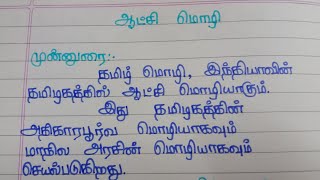 ஆட்சி மொழி
முன்னுரை:-
தமிழ் மொழி, இந்தியாவின்
தமிழகத்தில் ஆட்சி மொழியாகும்.
இது தமிழகத்தின்
அதிகாரபூர்வ மொழியாகவும்
மாநில அரசின் மொழியாகவும்
செயல்படுகிறது.